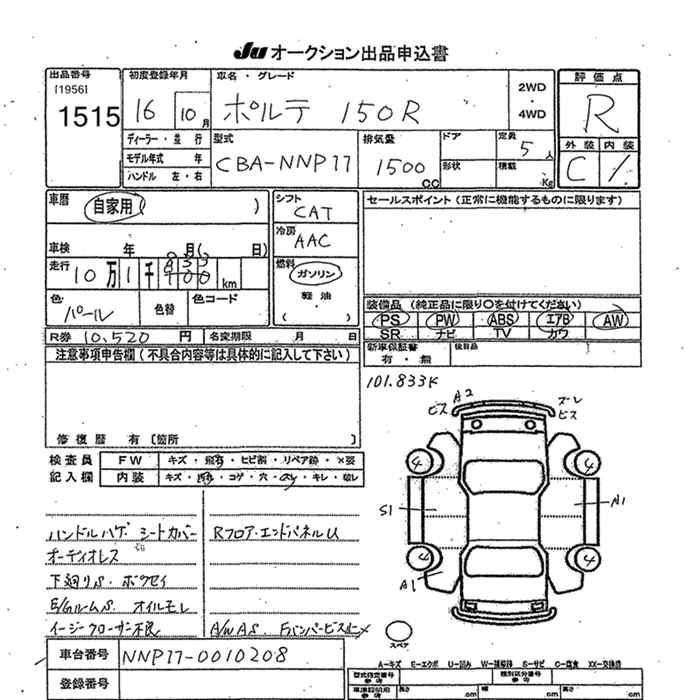 JU オークション出品申込書
出品番号
[1956]
1515
初度登録年月
16 10月
車名・グレード
ポルテ 150R
2WD
・
4WD
評価点
R
外装 内装
C
ディーラー・並行
モデル年式 年
ハンドル 左・右
型式
CBA-NNP11
排気量
1500 CC
ドア
形状
定員
5人
積載
Kg
車暦
自家用 ( )
車検 年 月( 日)
走行 10万1千 km
色
パール
色替
色コード
シフト
CAT
冷房
AAC
燃料
ガソリン
軽油
( )
セールスポイント (正常に機能するものに限ります)
装備品 (純正品に限り○を付けてください)
PS PW ABS エアB AW
SR ナビ TV カワ
新車保証書
有・無
後日品
R券 10,520 円
名変期限 月 日
注意事項申告欄 (不具合内容等は具体的に記入して下さい)
修復暦 有 [箇所 ]
101.833K
検査員
記入欄
FW キズ・飛石・ヒビ割・リペア跡・×要
内装 キズ・汚れ・コゲ・穴・ キレ・破レ
ハンドルハゲ シートカバー
オーディオレス
下廻りS. ボウセイ
E/GルームS. オイルモレ
イージークローザー不良
Rフロア・エンドパネルU
A/W AS Fバンパービス止メ
A2
ビス
ズレ
ビス
4 4
S1 A1
4 4
A1
スペア
車台番号 NNP11-0010208
登録番号
A-キズ E-エクボ U-凹み W-補修跡 S-サビ C-腐食 XX-交換済
型式指定番号
参考
類別区分番号
参考
車庫証明用
参考
長さ cm 幅 cm 高さ cm